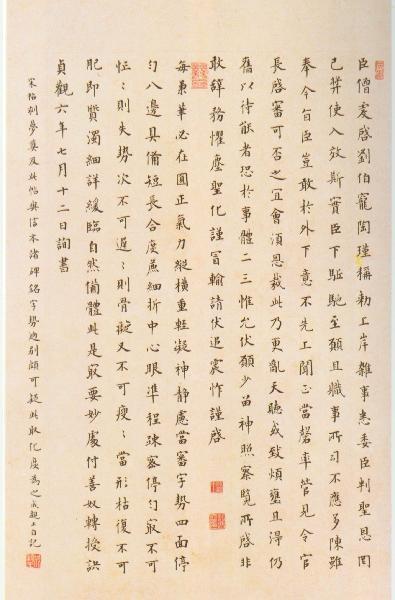 臣僧虔啓劉伯寵陶瑾稱勅上岸雜事悉委臣判聖恩罔
已弊使入效斯實臣下驅馳至願且職事所司不應多陳雖
奉今旨臣豈敢於外下意不先上聞正當罄率管見令官
長啓審可否之宜會須恩裁此乃更亂天聽或致煩壅且得仍
舊以待能者恐於事體二三惟允伏願少留神照察覽所啓非
敢辭務懼塵聖化謹冒輸請伏追震怍謹啓
每秉筆必在圓正氣力縱橫重輕凝神靜慮當審字勢四面停
勻八邊具備短長合度麁細折中心眼準程踈密停勻㝡不可
忙〻則失勢次不可遲〻則骨癡又不可瘦〻當形枯復不可
肥即質濁細詳緩臨自然備體此是㝡要妙處付善奴轉授訣
貞觀六年七月十二日詢書
宋榻刻夢奠及此帖與信本諸碑銘字勢逈別頗可疑此取化度為之自記